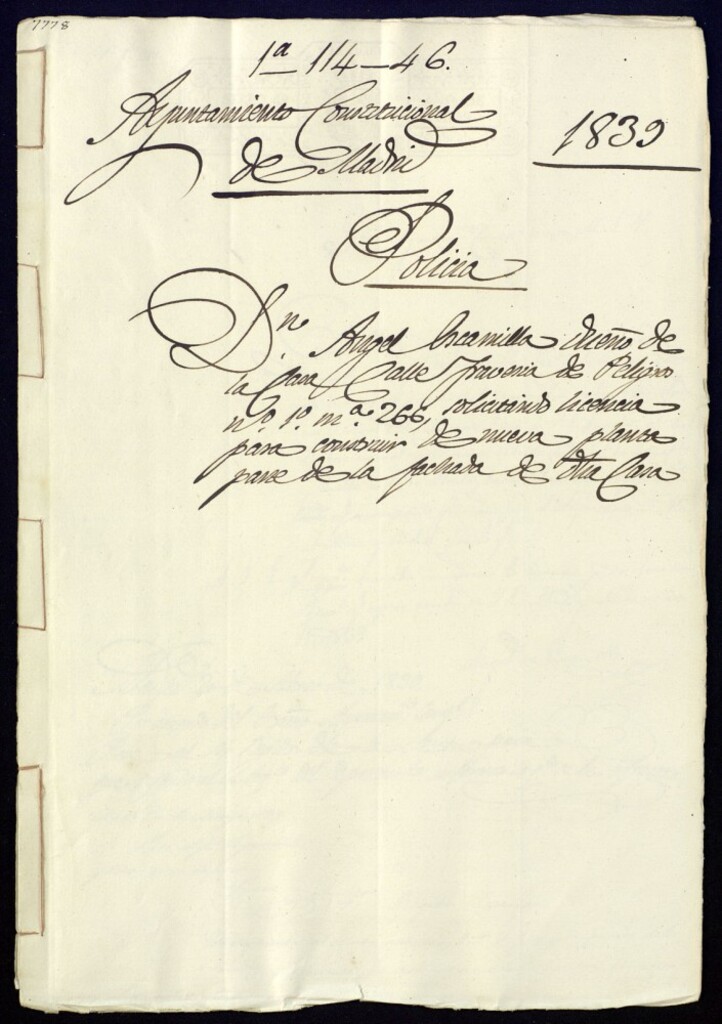 7778
1ª 114-46.
Ayuntamiento Constitucional
de Madrid
1839
Policia
Dn. Angel Escamilla dueño de
la Casa Calle Travesia de Peligros
nº. 1º. mª. 266, solicitando licencia
para construir de nueva planta
parte de la fachada de dha Casa